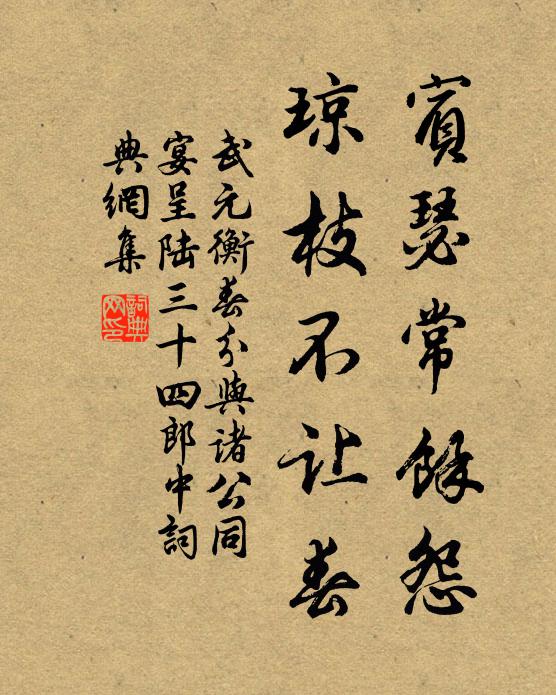 賓瑟常餘怨
琼枝不让春
武元衡春分與诸公同
宴呈陆三十四郎中詞
典網集
詞典
网印